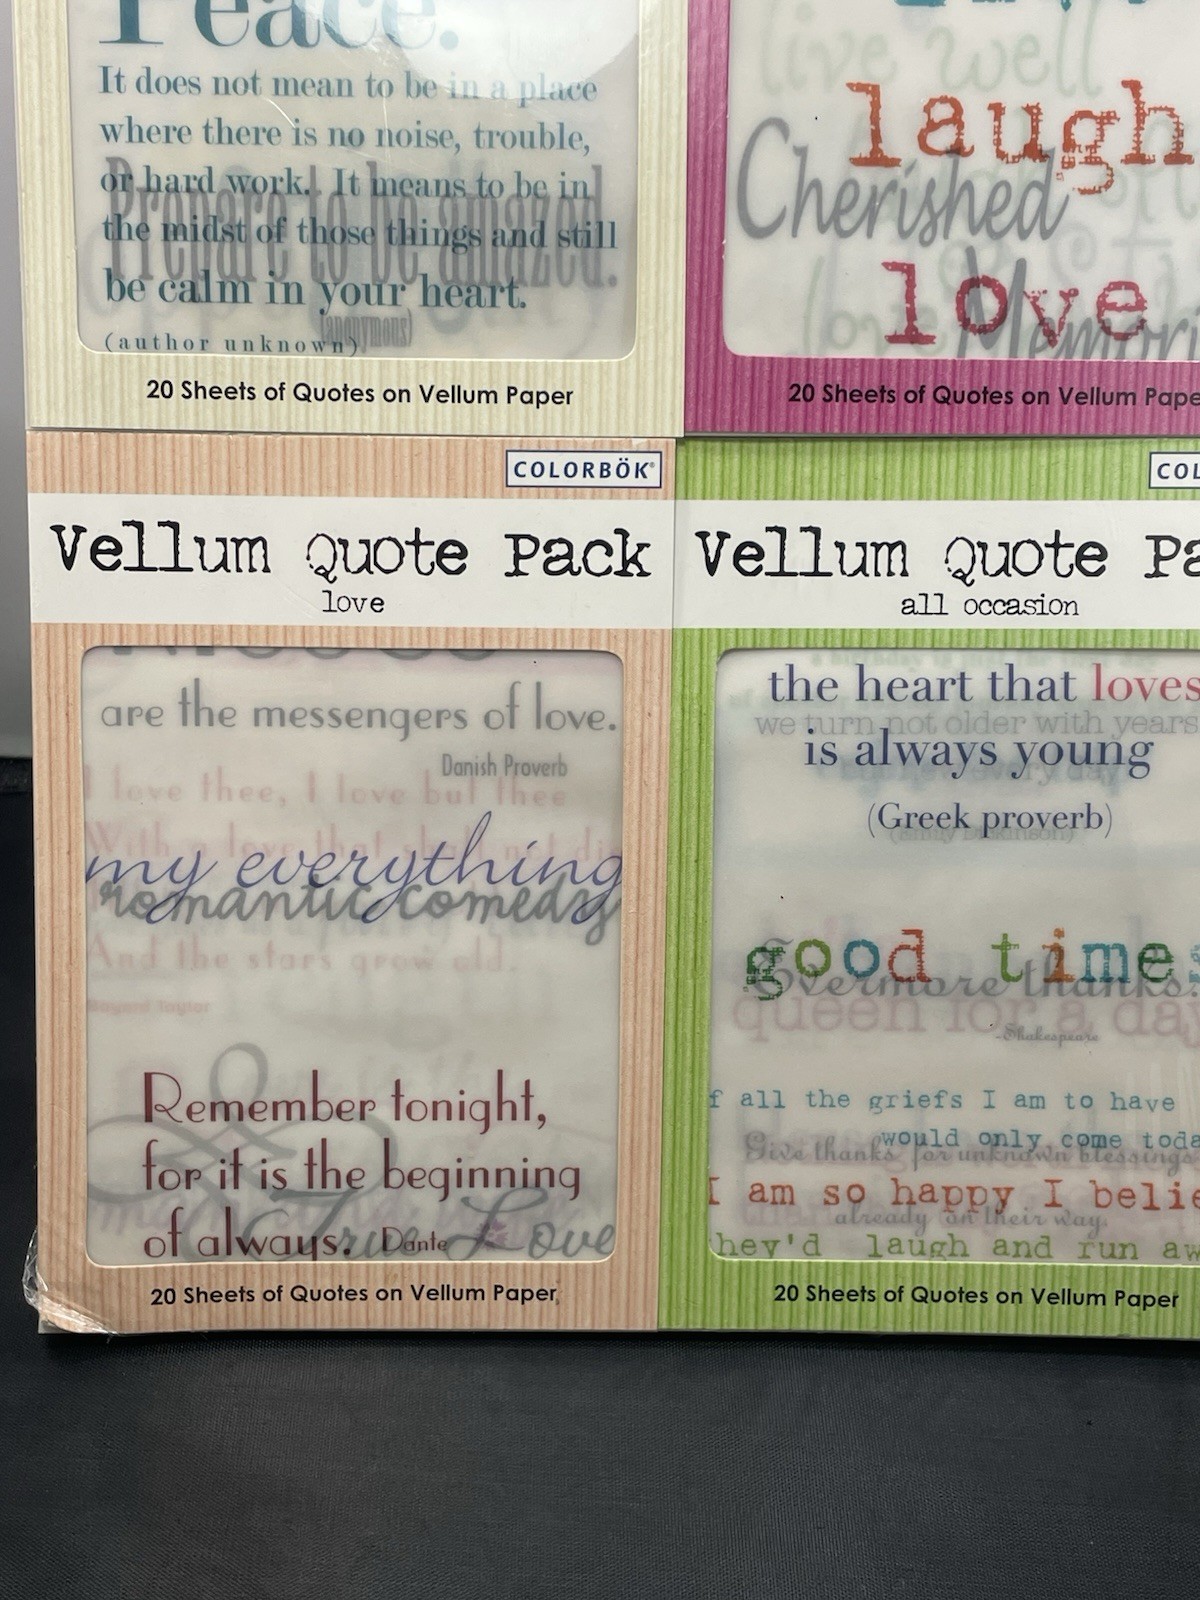 Peace.
It does not mean to be in a place
where there is no noise, trouble,
or hard work. It means to be in
the midst of those things and still
be calm in your heart.
(author unknown)
Prepare to be amazed.
(anonymous)
20 Sheets of Quotes on Vellum Paper
live well
laugh
Cherished
love
20 Sheets of Quotes on Vellum Pape
COLORBÖK
Vellum Quote Pack
love
are the messengers of love.
Danish Proverb
I love thee, I love but thee
With a love that shall not di
my everything
romantic comedy
And the stars grow old.
Bayard Taylor
Remember tonight,
for it is the beginning
of always. Dante
True Love
20 Sheets of Quotes on Vellum Paper
COL
Vellum Quote Pa
all occasion
the heart that loves
we turn not older with years
is always young
(Greek proverb)
(Emily Dickinson)
good times
Evermore thanks.
queen for a day
-Shakespeare
f all the griefs I am to have
would only come toda
Give thanks for unknown blessings
I am so happy I belie
already on their way.
hey'd laugh and run aw
20 Sheets of Quotes on Vellum Paper